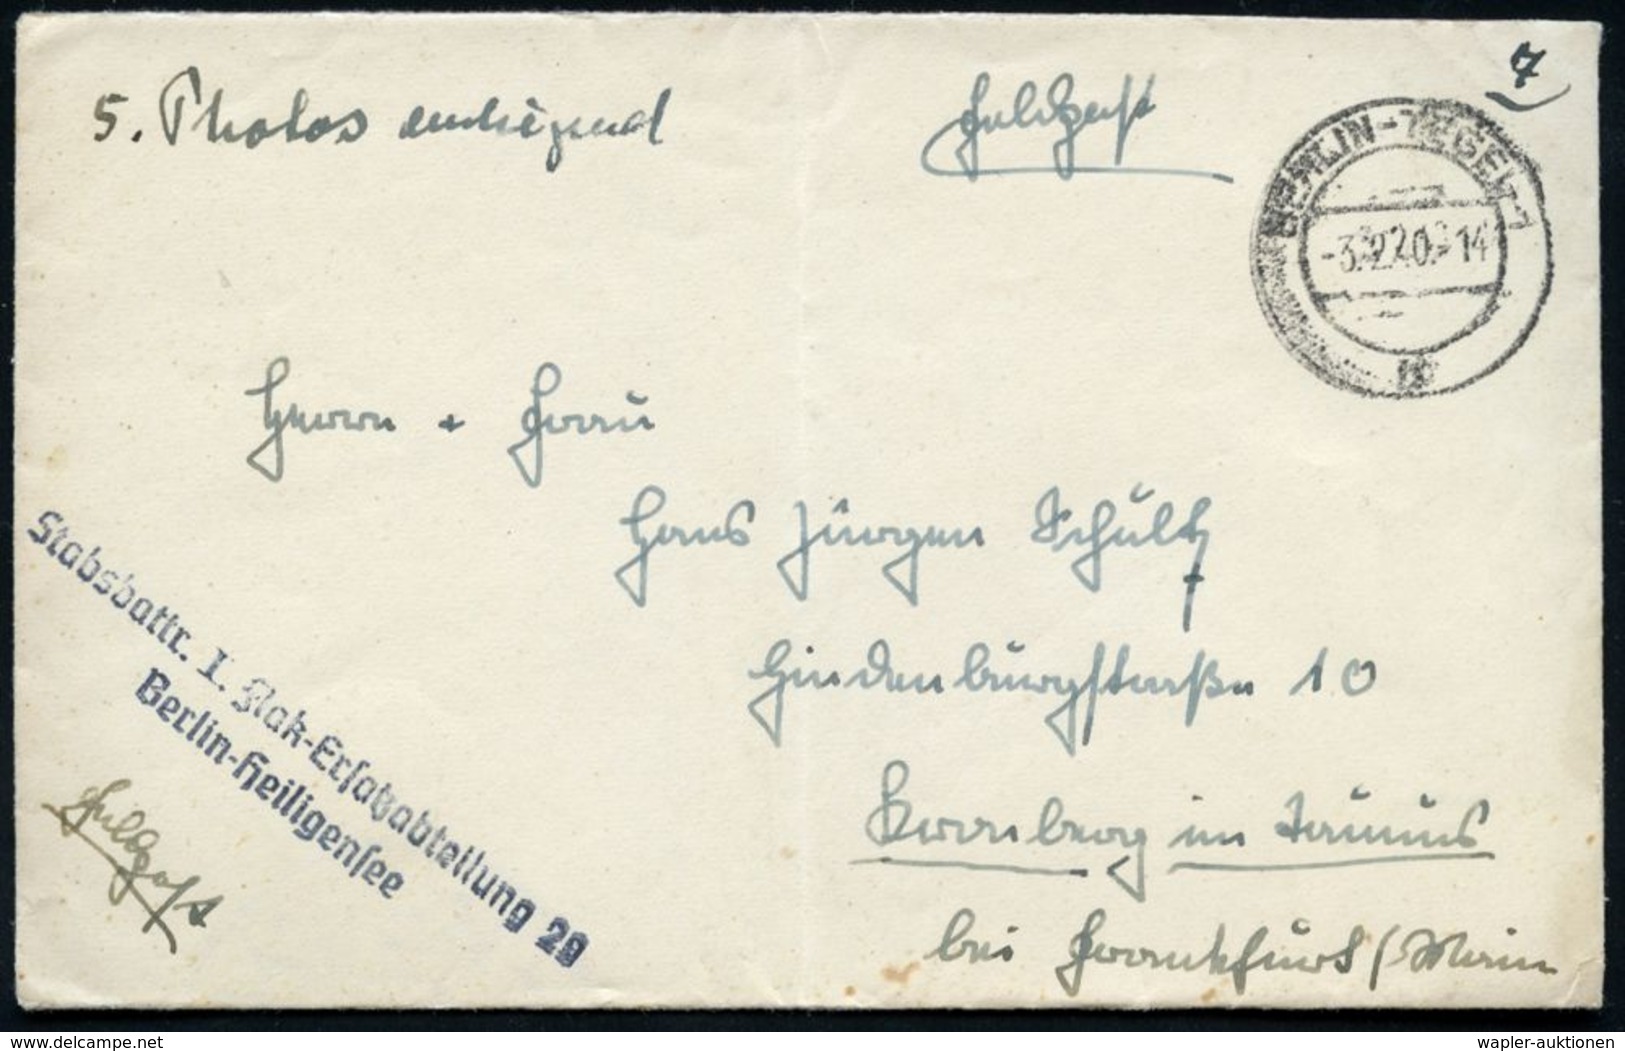 7
5. Photos anliegend
Feldpost
BERLIN-TEGEL 1
-3.2.40.-14
Herrn + Frau
Hans Jürgen Schultz
Hindenburgstraße 10
Kronberg im Taunus
bei Frankfurt/Main
Stabsbattr. I. Flak-Ersatzabteilung 29
Berlin-Heiligensee
Feldpost
delcampe.net
wapler-auktionen